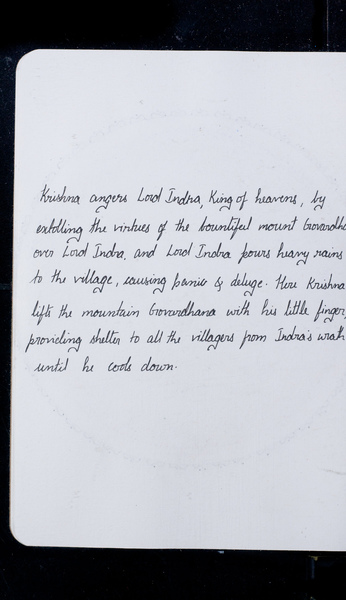 Krishna angers Lord Indra, King of heavens, by
extolling the virtues of the bountiful mount Govardha
over Lord Indra, and Lord Indra pours heavy rains
to the village, causing panic & deluge. Here Krishna
lifts the mountain Govardhana with his little finger,
providing shelter to all the villagers from Indra's wrath
until he cools down.